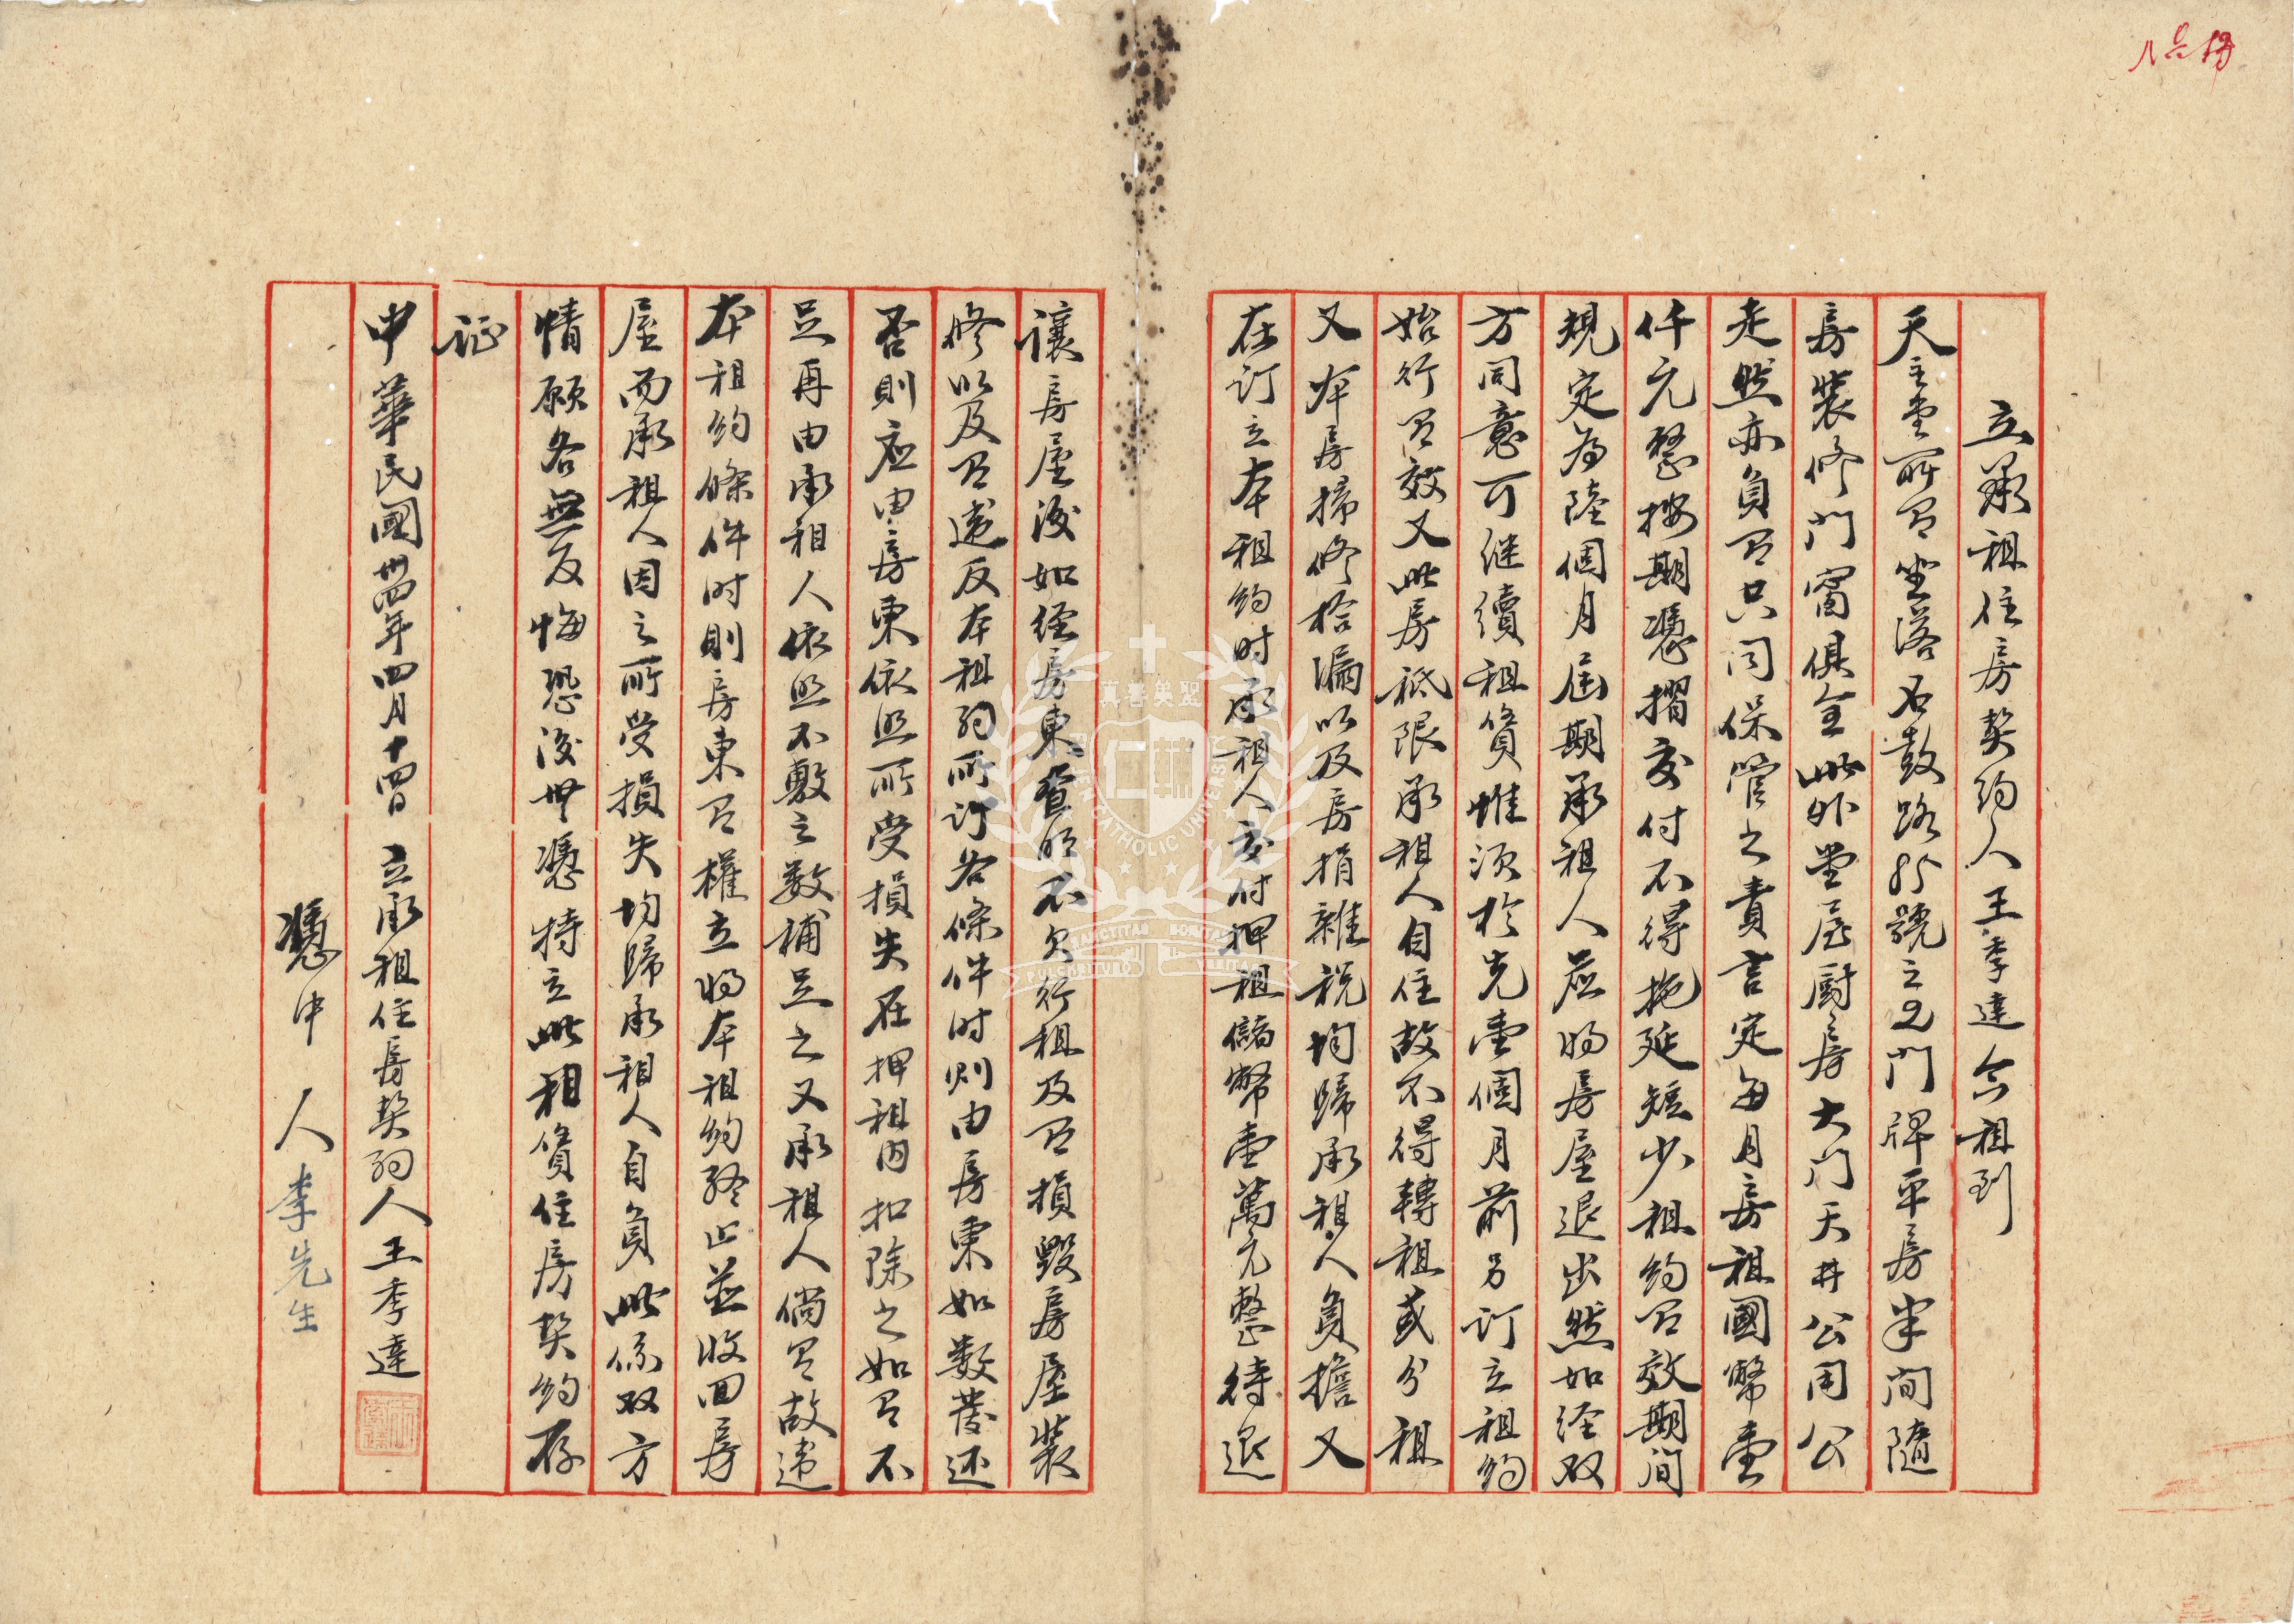 立承租住房契約人王季達今租到
天主堂所有坐落石鼓路號之門牌平房半間隨
房裝修門窗俱全此外堂屋厨房大门天井公用公
走然亦負有共同保管之責言定每月房租國幣壹
仟元整按期憑摺交付不得拖延短少租約有效期间
規定為陸個月屆期承租人應將房屋退出然如经双
方同意可继續租賃惟须於先壹個月前另订立租約
始行有效又此房祇限承租人自住故不得轉租或分租
又本房掃修拾漏以及房捐雜税均歸承租人負擔又
在订立本租約时承租人交付押租儲幣壹萬元整待退
讓房屋後如经房東查明不欠行租及有損毀房屋裝
修以及有違反本租約所订各條件时则由房東如数發还
否則应由房東依照所受損失在押租内扣除之如有不
足再由承租人依照不敷之数補足之又承租人倘有故違
本租約條件时則房東有權立將本租約终止並收回房
屋而承租人因之所受損失均歸承租人自負此係双方
情願各無反悔恐後無憑特立此租賃住房契約存
証
中華民國卅四年四月十四日 立承租住房契約人王季達
憑中人李先生
真善美聖
FU JEN CATHOLIC UNIVERSITY
SANCTITAS BONITAS
PULCHRITUDO VERITAS